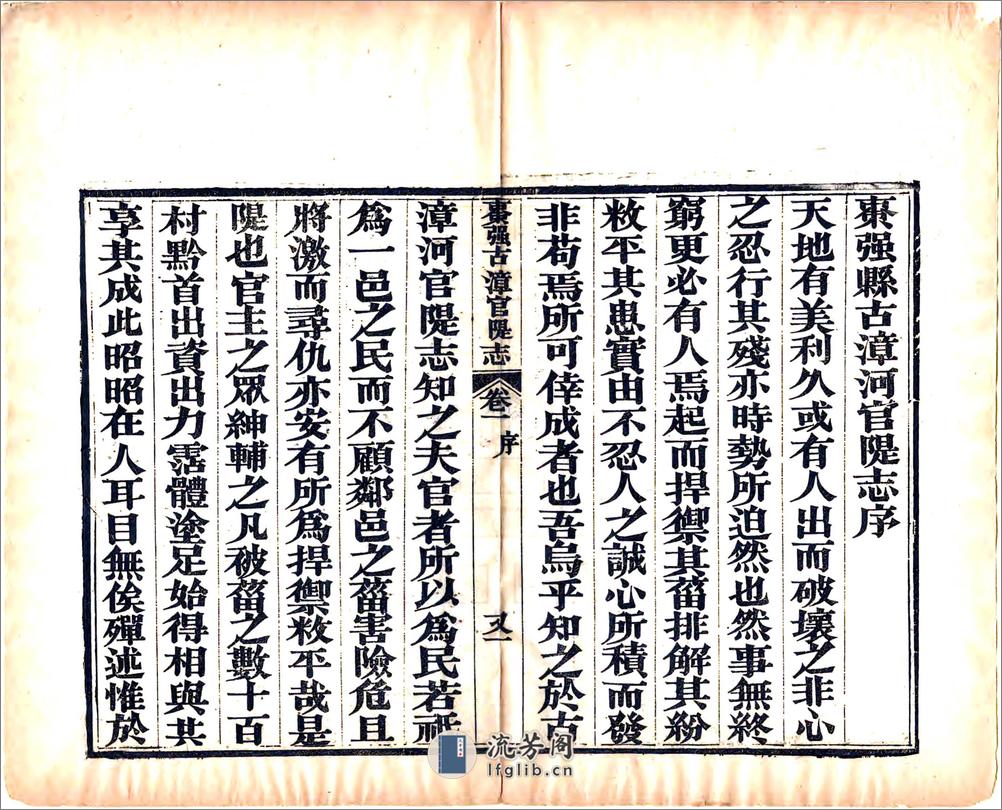 棗强縣古漳河官隄志序
天地有美利久或有人出而破壞之非心
之忍行其殘亦時勢所迫然也然事無終
窮更必有人焉起而捍禦其菑排解其紛
敉平其患實由不忍人之誠心所積而發
非苟焉所可倖成者也吾烏乎知之於古
棗强古漳官隄志
卷一
序
又一
漳河官隄志知之夫官者所以為民若祇
為一邑之民而不顧鄰邑之菑害險危且
將激而尋仇亦安有所為捍禦敉平哉是
隄也官主之眾紳輔之凡被菑之數十百
村黔首出資出力霑體塗足始得相與共
享其成此昭昭在人耳目無俟殫述惟於
流芳阁
lfglib.cn